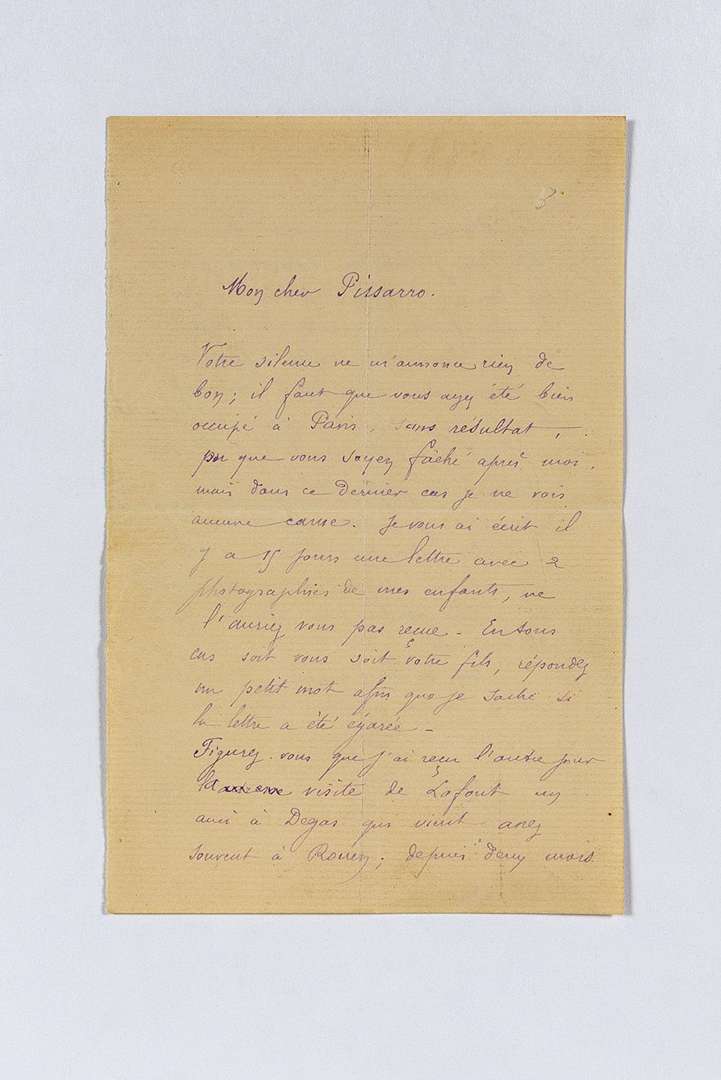 3
Mon cher Pissarro.
Votre silence ne m'annonce rien de
bon; il faut que vous ayez été bien
occupé à Paris, sans résultat,
ou que vous soyez fâché après moi,
mais dans ce dernier cas je ne vois
aucune cause. Je vous ai écrit il
y a 15 jours une lettre avec 2
photographies de mes enfants, ne
l'auriez vous pas reçue. En tous
cas soit vous soit votre fils, répondez
un petit mot afin que je sache si
la lettre a été égarée _
Figurez-vous que j'ai reçu l'autre jour
la visite de Lafont un
ami à Degas qui vient assez
souvent à Rouen; depuis deux mois